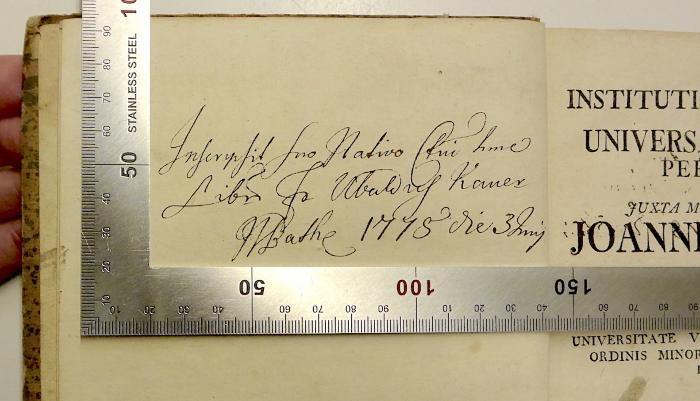 Inscrypsit suo Nativo
Libr Fr Ubaldus Kauer
1775 die 3 Junij
INSTITUTI
UNIVERS
PER
JUXTA M
JOANN
UNIVERSITATE V
ORDINIS MINOR
STAINLESS STEEL
10 20 30 40 50 60 70 80 90 10
10 20 30 40 50 60 70 80 90 100 10 20 30 40 150 60 70 80 90